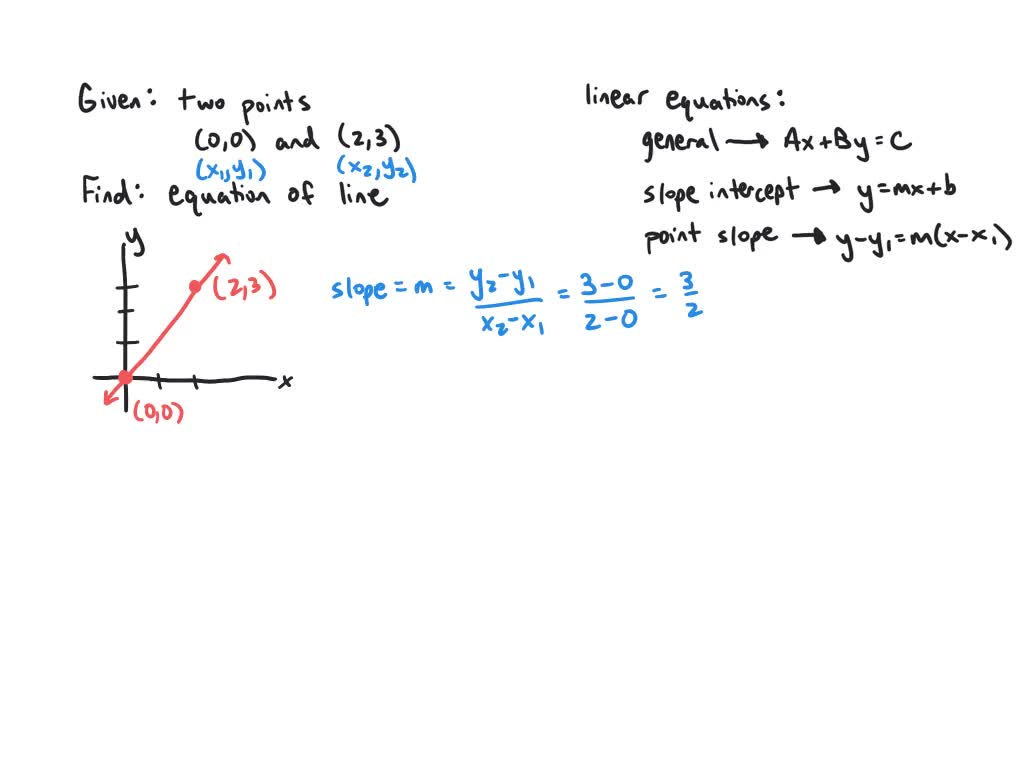 Given: two points
(0,0) and (2,3)
(x₁,y₁) (x₂,y₂)
Find: equation of line
linear equations:
general → Ax+By=C
slope intercept → y=mx+b
point slope → y-y₁=m(x-x₁)
y
(2,3)
x
(0,0)
slope = m = y₂-y₁/x₂-x₁ = 3-0/2-0 = 3/2